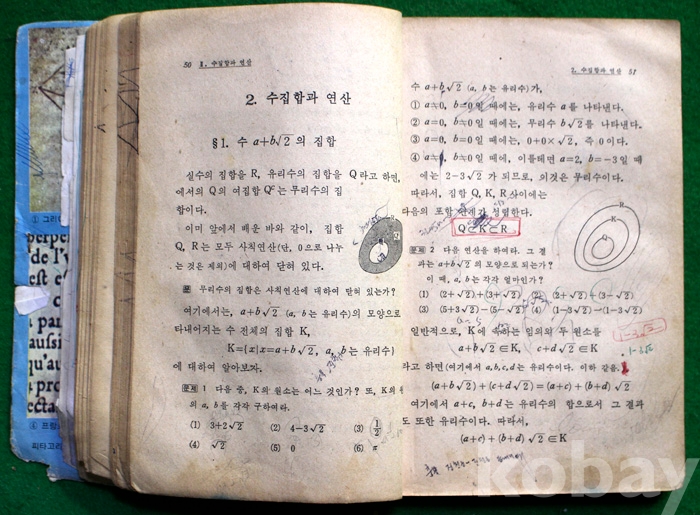 50 Ⅱ. 수집합과 연산
2. 수집합과 연산
§1. 수 a+b√2 의 집합
실수의 집합을 R, 유리수의 집합을 Q라고 하면,
에서의 Q의 여집합 Qᶜ는 무리수의 집
합이다.
이미 앞에서 배운 바와 같이, 집합
Q, R는 모두 사칙연산(단, 0으로 나누
는 것은 제외)에 대하여 닫혀 있다.
문 무리수의 집합은 사칙연산에 대하여 닫혀 있는가?
여기에서는, a+b√2 (a, b는 유리수)의 모양으로
타내어지는 수 전체의 집합 K,
K={x|x=a+b√2, a, b는 유리수}
에 대하여 알아보자.
문제 1 다음 중, K의 원소는 어느 것인가? 또, K의
의 a, b를 각각 구하여라.
(1) 3+2√2 (2) 4-3√2 (3) 1/2
(4) √2 (5) 0 (6) π
2. 수집합과 연산 51
수 a+b√2 (a, b는 유리수)가,
① a≠0, b=0일 때에는, 유리수 a를 나타낸다.
② a=0, b≠0일 때에는, 무리수 b√2를 나타낸다.
③ a=0, b=0일 때에는, 0+0×√2, 즉 0이다.
④ a≠0, b≠0일 때에, 이를테면 a=2, b=-3일 때
에는 2-3√2 가 되므로, 이것은 무리수이다.
따라서, 집합 Q, K, R 사이에는
다음의 포함 관계가 성립한다.
Q⊂K⊂R
R
K
Q
문제 2 다음 연산을 하여라. 그 결
과는 a+b√2 의 모양으로 되는가?
이 때, a, b는 각각 얼마인가?
(1) (2+√2)+(3+√2) (2) (2+√2)+(3-√2)
(3) (5+3√2)-(5-√2) (4) (1-√2)-(1-3√2)
일반적으로, K에 속하는 임의의 두 원소를
a+b√2∈K, c+d√2∈K
라고 하면(여기에서 a,b,c,d는 유리수이다. 이하 같음.)
(a+b√2)+(c+d√2)=(a+c)+(b+d)√2
여기에서 a+c, b+d는 유리수의 합으로서 그 결과
도 또한 유리수이다. 따라서,
(a+c)+(b+d)√2∈K
1-3√2
1-3√2
perper
'de l'e
est e
a par
aussi
qu'au
a pro
ecta
피타고리
kobay